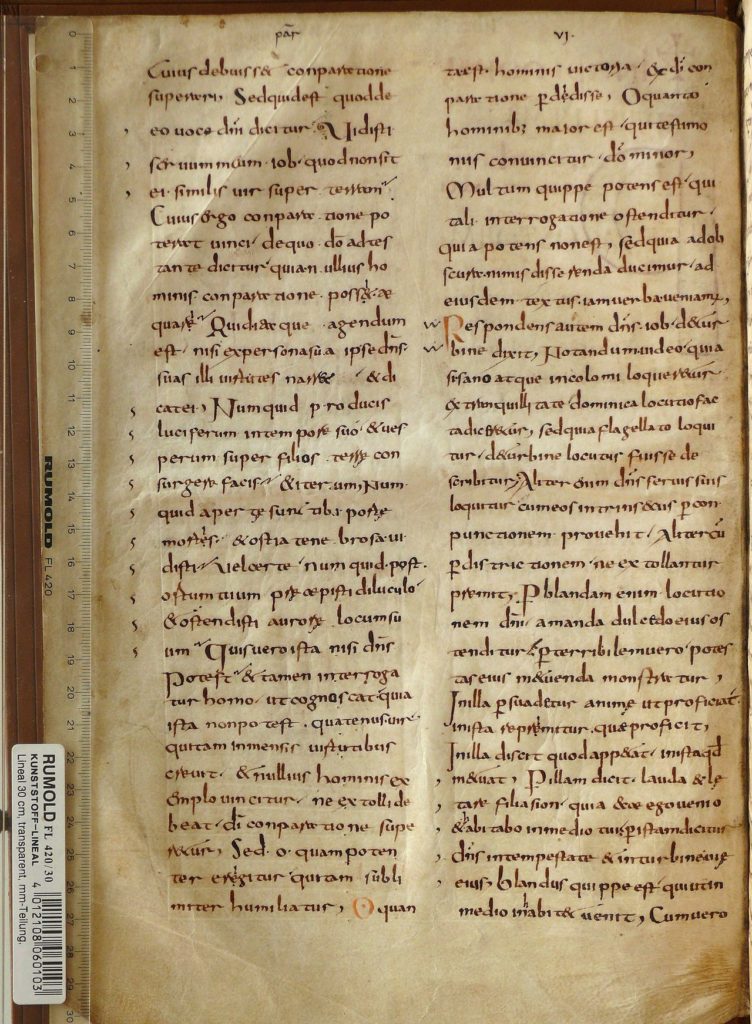 pār VI·
Cuius debuisset conparatione
superari, Sed quid est quod de
eo voce dn̄i dicitur. Vidisti
servum meum iob· quod non sit
ei similis vir super terram
Cuius ergo conparatione po
terat vinci· de quo dō adtes
tante dicitur quia nullius ho
minis conparatione posset ae
quari Quid itaque agendum
est· nisi ex persona sua ipse dn̄s
suas illi virtutes narret & di
cat ei, Numquid producis
luciferum in tempore suo· & ves
perum super filios terre con
surgere facis & iterum, Num
quid aperte sunt tibi porte
mortis· & ostia tenebrosa vi
disti· Vel certe numquid post
ortum tuum precepisti diluculo
& ostendisti aurore locum su
um Quis vero ista nisi dn̄s
Potest & tamen interroga
tur homo· ut cognoscat quia
ista non potest· quatenus vir
qui tam inmensis virtutibus
crevit· & nullius hominis ex
emplo vincitur· ne extolli de
beat· dī conparatione supe
retur, Sed o quam poten
ter erigitur qui tam subli
miter humiliatur, O quan
ta est hominis victoria· ex dī con
paratione perdidisse, O quanto
hominib; maior est· qui testimo
niis convincitur· dō minor,
Multum quippe potens est· qui
tali interrogatione ostenditur·
quia potens non est, sed quia ad ob
scura nimis disserenda ducimur· ad
eiusdem textus iam verba veniamus,
Respondens autem dn̄s iob· de tur
bine dixit, Notandum video quia
si sano atque incolomi loqueretur
ex tranquillitate dominica locutio fac
ta diceretur, sed quia flagellato loqui
tur· de turbine locutus fuisse de
scribitur, Aliter enim dn̄s servis suis
loquitur cum eos intrinsecus per con
punctionem provehit· Aliter cū
per districtionem ne extollantur
premit, P blandam enim locutio
nem dn̄i· amanda dulcedo eius os
tenditur, per terribilem vero potes
tas eius metuenda monstratur,
In illa persuadetur anime ut proficiat·
in ista reprimitur· quae proficit,
In illa discit quod appetat· in ista qd̄
metuat, P illam dicit· lauda & le
tare filia sion· quia ecce ego venio
& habitabo in medio tui, per istam dicitur
dn̄s in tempestate & in turbine viae
eius, blandus quippe est qui ut in
medio inhabitet venit, Cum vero
RUMOLD FL 420
RUMOLD FL 420/30
KUNSTSTOFF-LINEAL
Lineal 30 cm, transparent, mm-Teilung,
4 012108 060103